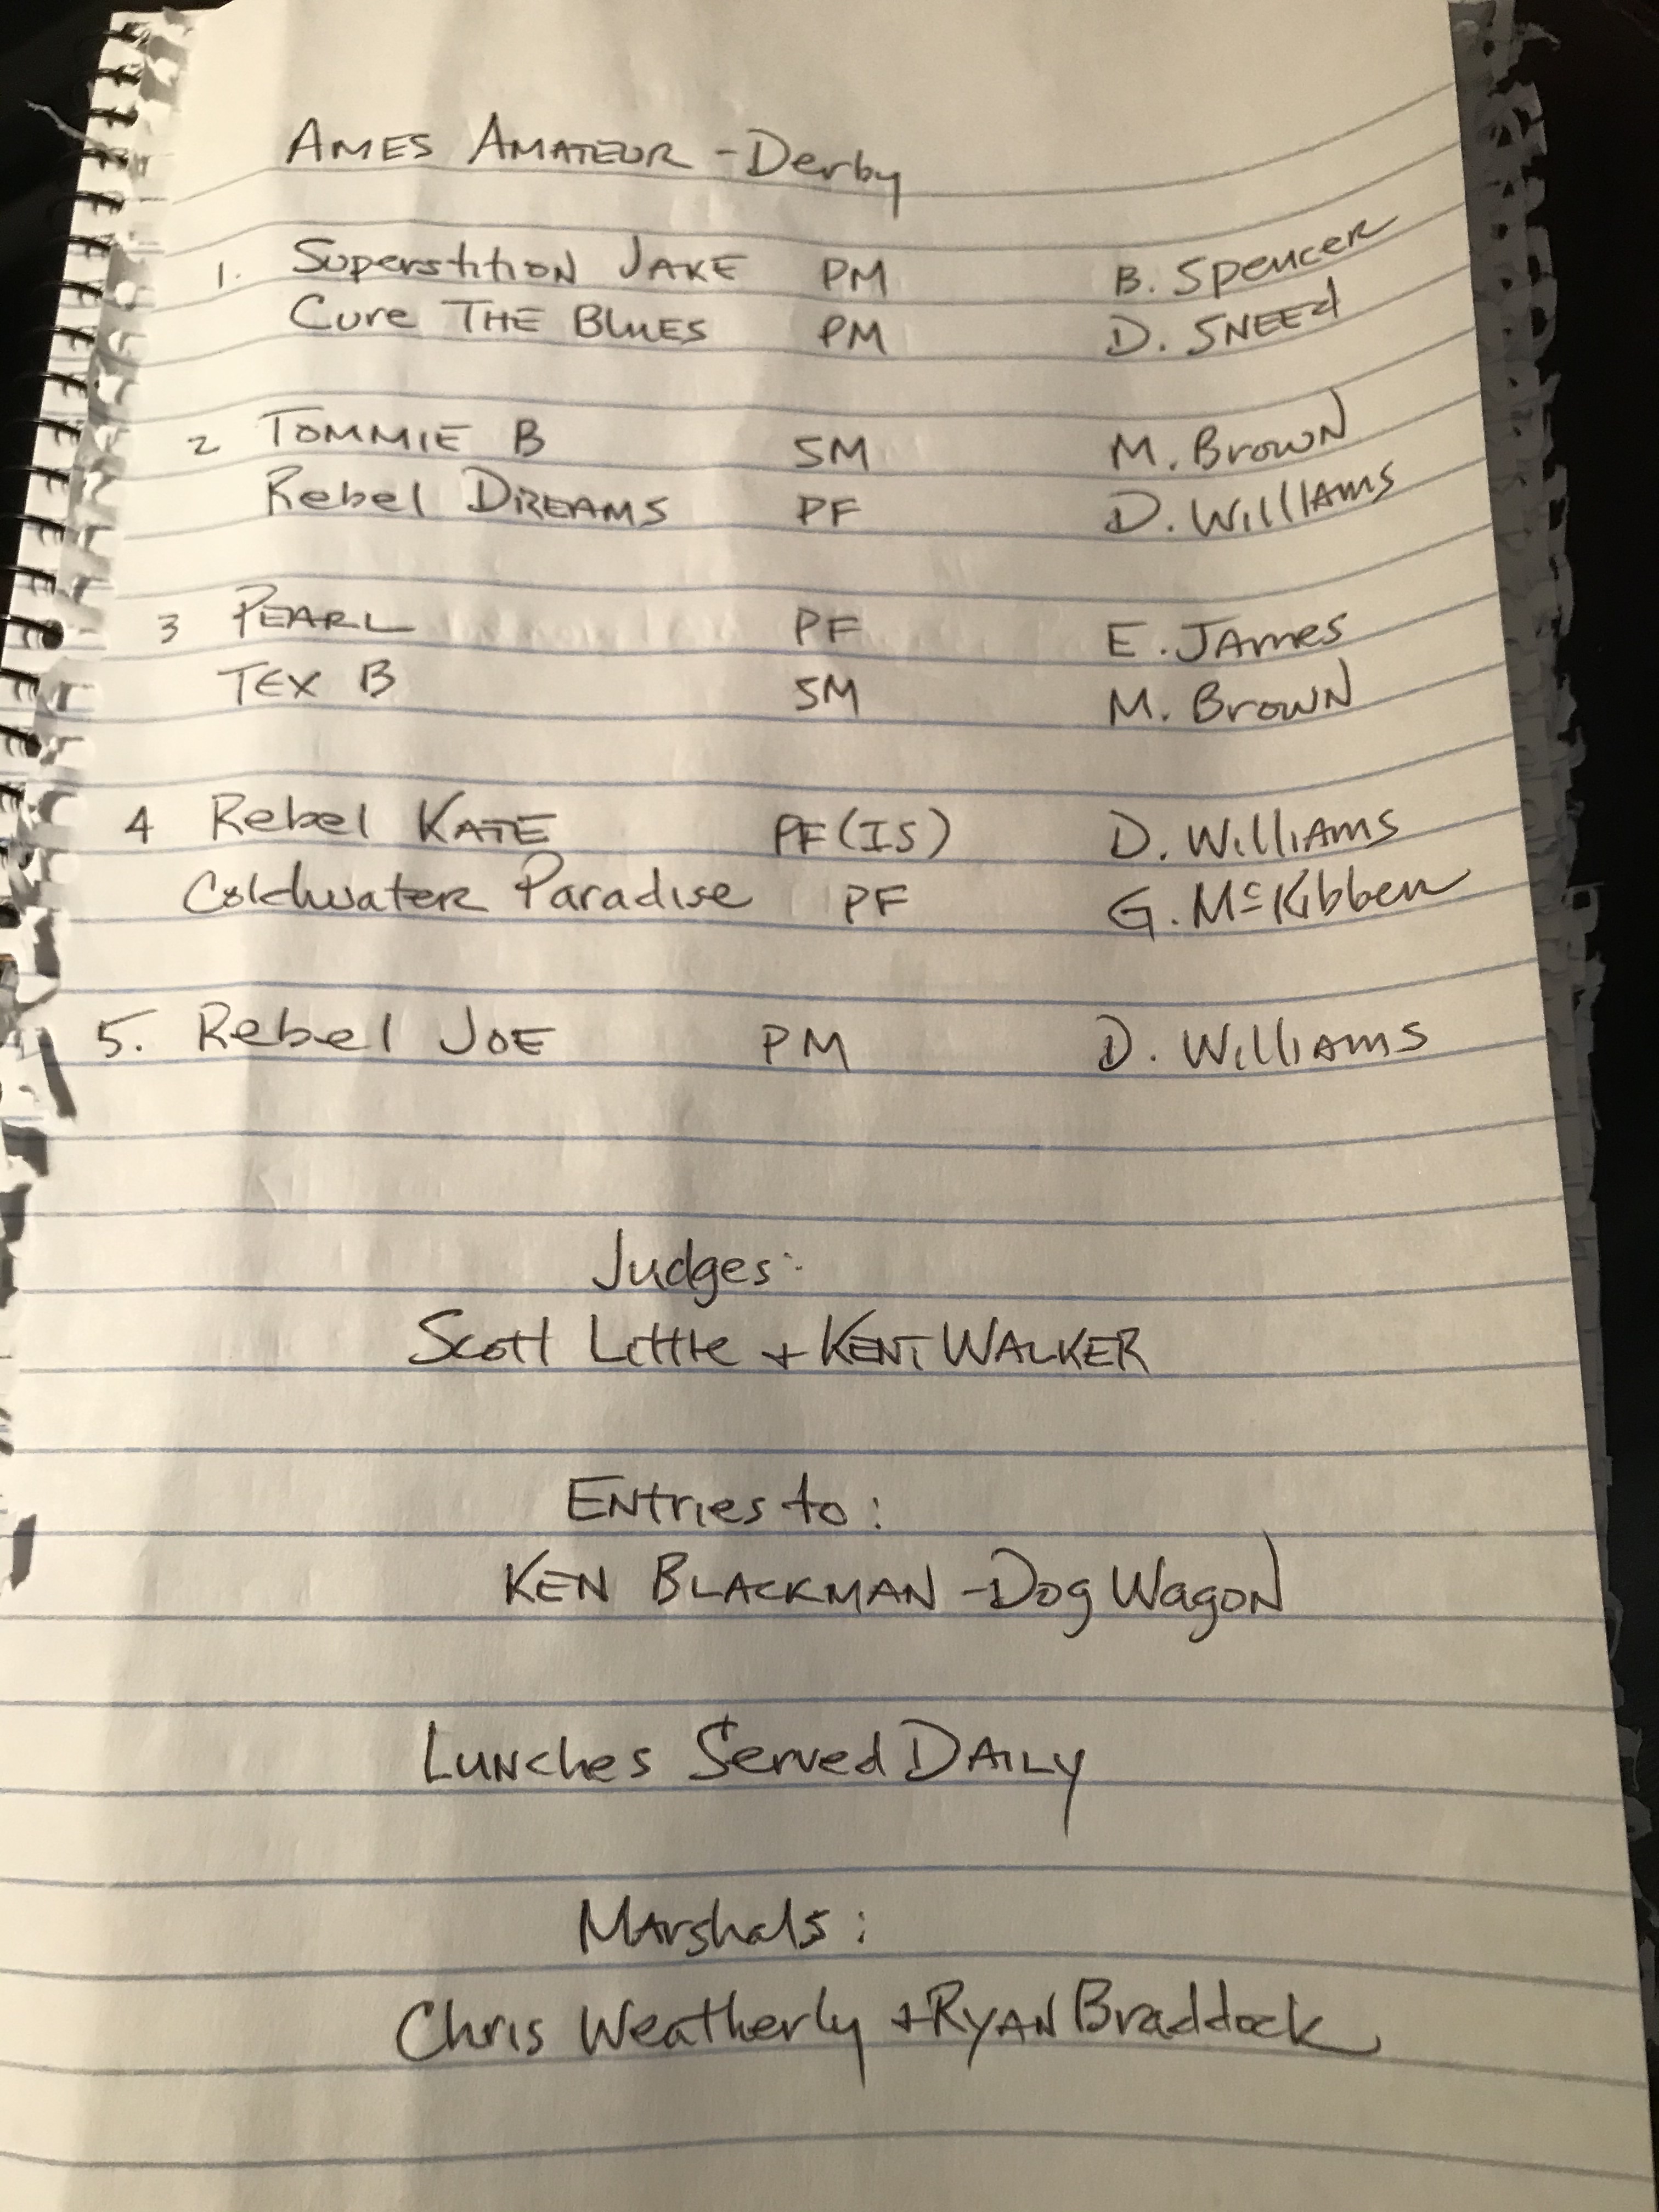 AMES AMATEUR - Derby
1. Superstition JAKE PM B. Spencer
Cure THE BLUES PM D. SNEED
2 TOMMIE B SM M. BROWN
Rebel DREAMS PF D. Williams
3 PEARL PF E. JAMES
TEX B SM M. BROWN
4 Rebel KATE PF (IS) D. Williams
Coldwater Paradise PF G. McKibben
5. Rebel JOE PM D. Williams
Judges:
Scott Little + KENT WALKER
Entries to:
KEN BLACKMAN - Dog Wagon
Lunches Served DAILY
Marshals:
Chris Weatherly + RYAN Braddock